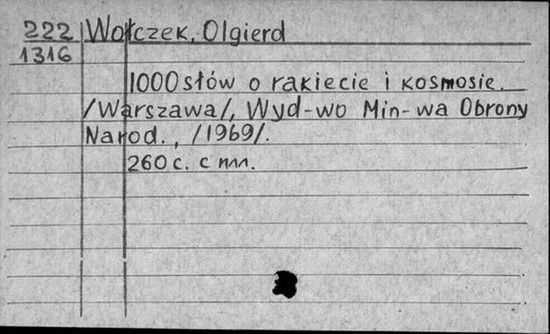 222 Wołczek, Olgierd
1316
1000 słów o rakiecie i kosmosie.
/Warszawa/, Wyd-wo Min-wa Obrony
Narod., /1969/.
260 с. с илл.